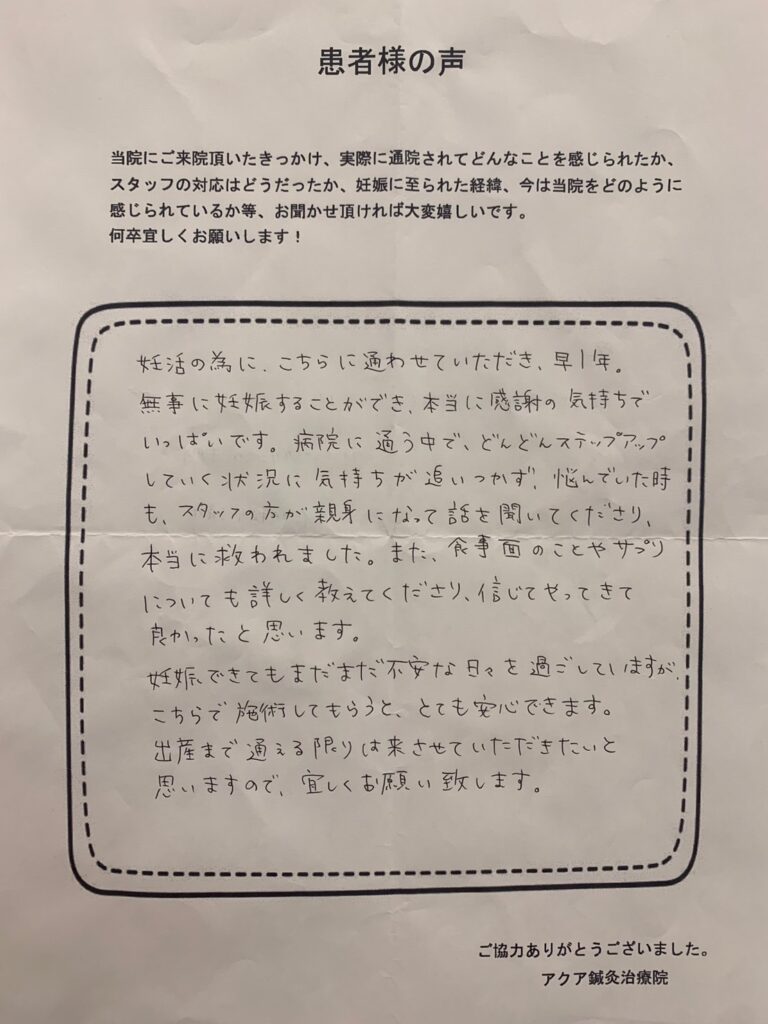 患者様の声
当院にご来院頂いたきっかけ、実際に通院されてどんなことを感じられたか、
スタッフの対応はどうだったか、妊娠に至られた経緯、今は当院をどのように
感じられているか等、お聞かせ頂ければ大変嬉しいです。
何卒宜しくお願いします！
妊活の為に、こちらに通わせていただき、早1年。
無事に妊娠することができ、本当に感謝の気持ちで
いっぱいです。病院に通う中で、どんどんステップアップ
していく状況に気持ちが追いつかず、悩んでいた時
も、スタッフの方が親身になって話を聞いてくださり、
本当に救われました。また、食事面のことやサプリ
についても詳しく教えてくださり、信じてやってきて
良かったと思います。
妊娠できてもまだまだ不安な日々を過ごしていますが、
こちらで施術してもらうと、とても安心できます。
出産まで通える限りは来させていただきたいと
思いますので、宜しくお願い致します。
ご協力ありがとうございました。
アクア鍼灸治療院